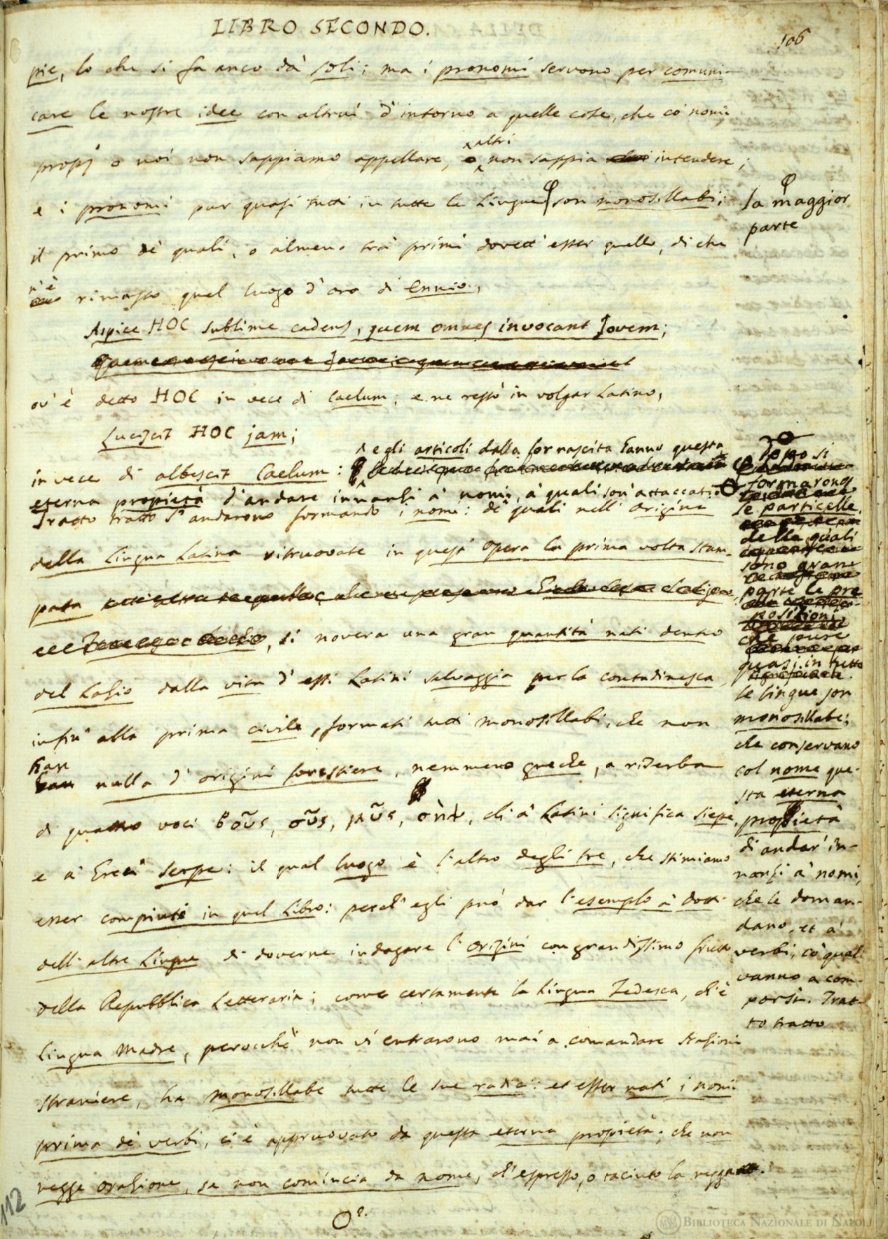 LIBRO SECONDO.
106
pie, lo che si fa anco da soli; ma i pronomi servono per comuni-
care le nostre idee con altrui d'intorno a quelle cose, che co' nomi
propj o noi non sappiamo appellare, o altri non sappia intendere;
e i pronomi pur quasi tutti in tutte le Lingue la maggior parte son monosillabi;
il primo de' quali, o almeno tra' primi dovett' esser quello, di che
n'è rimasto quel luogo d'oro di Ennio,
Aspice HOC sublime cadens, quem omnes invocant Jovem;
ov' è detto HOC in vece di Caelum; e ne restò in volgar Latino,
Luciscit HOC jam;
in vece di albescit Caelum: e gli articoli dalla lor nascita hanno questa
eterna propietà d'andare innanzi a' nomi, a' quali son' attaccati.
Dopo si
formarono
le particelle,
delle quali
sono gran
parte le pre-
posizioni
che pure
quasi in tutte
le lingue son
monosillabe;
che conservano
col nome que-
sta eterna
propietà
di andar' in-
nanzi a' nomi,
che le doman-
dano, et a'
verbi, co' quali
vanno a com-
porsi. Trat-
to tratto
Tratto tratto s'andarono formando i nomi: de' quali nell' Origine
della Lingua Latina ritruovate in quest' Opera la prima volta stam-
pata
, si novera una gran quantità nati dentro
del Lazio dalla vita d' essi Latini selvaggia per la contadinesca,
infin' alla prima civile, formati tutti monosillabi, che non
han nulla d' origini forestiere, nemmeno greche, a riserba
di quattro voci βοῦς, σῦς, μῦς, σὴψ, ch' a' Latini significa siepe,
e a' Greci serpe: il qual luogo è l'altro degli tre, che stimiamo
esser compiuti in quel Libro: perch' egli può dar l'esemplo a' dotti
dell' altre Lingue di doverne indagare l' origini con grandissimo frutto
della Repubblica Letteraria; come certamente la Lingua Tedesca, ch'è
lingua madre, perocchè non vi entrarono mai a comandare Nazioni
straniere, ha monosillabe tutte le sue radici: et esser nati i nomi
prima de' verbi, ci è appruovato da questa eterna propietà; che non
regge orazione, se non comincia da nome, ch'espresso, o taciuto la regga.
112
BIBLIOTECA NAZIONALE DI NAPOLI